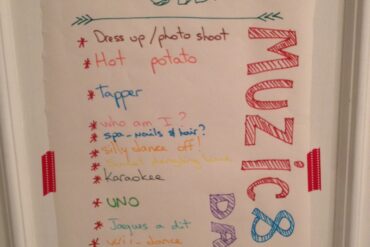 * Dress up / photo shoot
* Hot potato
* Tapper
* who am I ?
* spa - nails & hair?
* silly dance off!
*
* Karaokee
* UNO
* Jaques a dit
* wii - dance
MUZIC &
DA